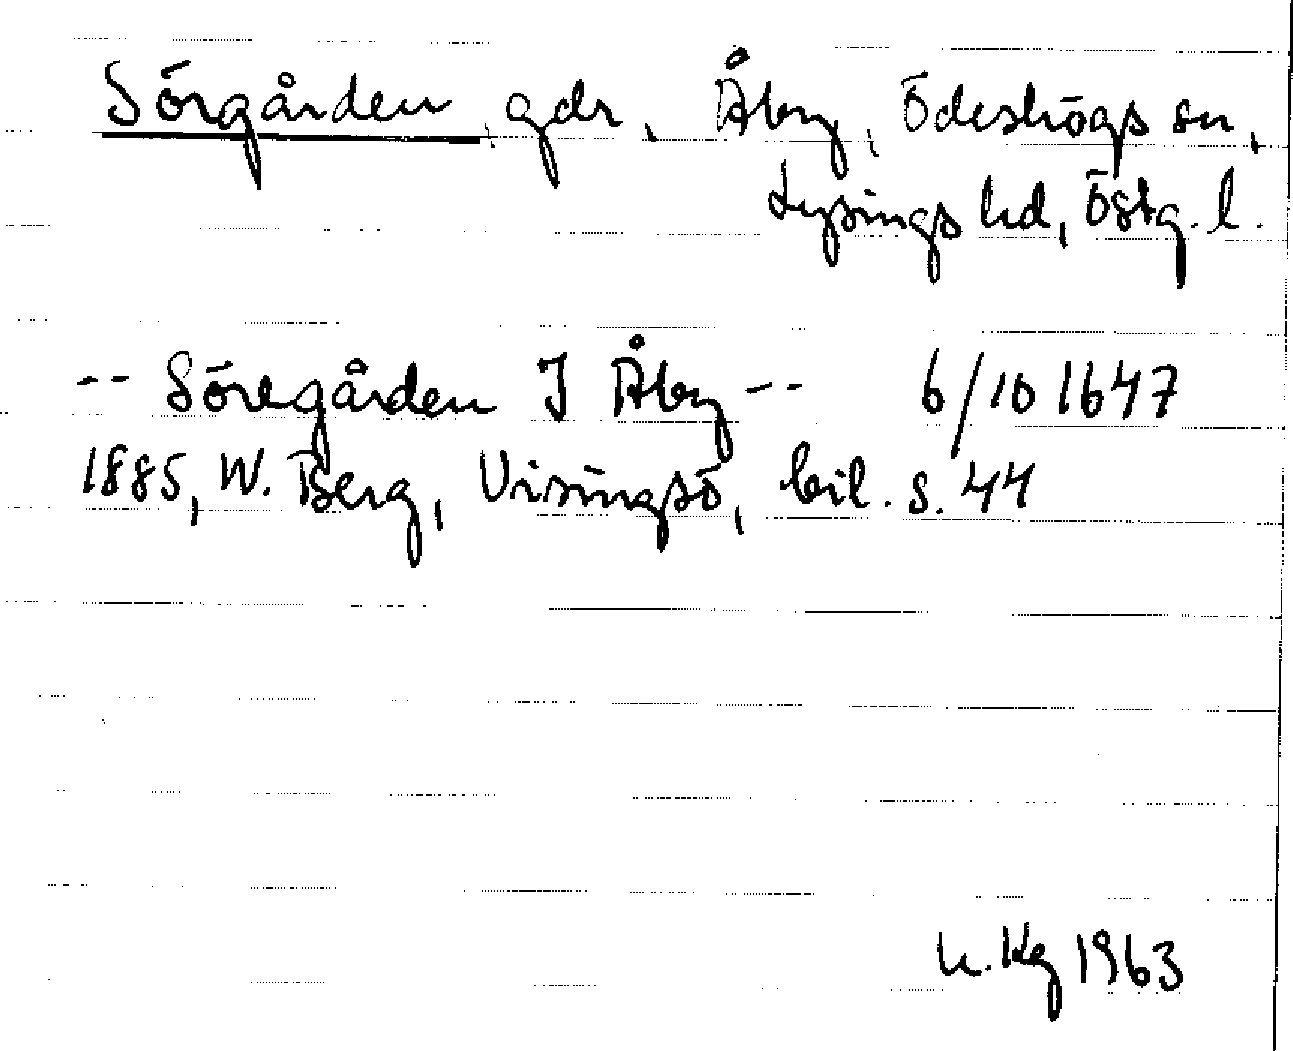 Sörgården, gdr, Åby, Ödeshögs sn,
Lysings hd, Östg. l.
-- Söregården I Åby -- 6/10 1647
1885, W. Berg, Visingsö, bil. s. 44
K. Kg 1963